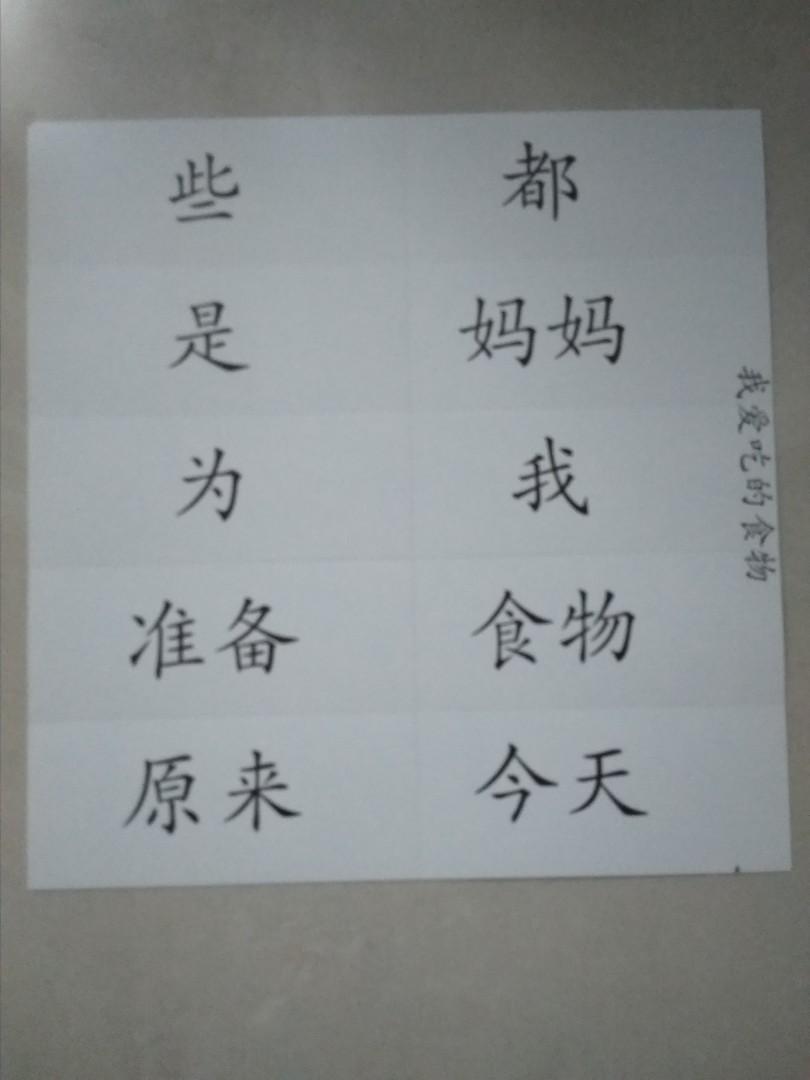 些 都
是 妈妈
为 我
准备 食物
原来 今天
我爱吃的食物